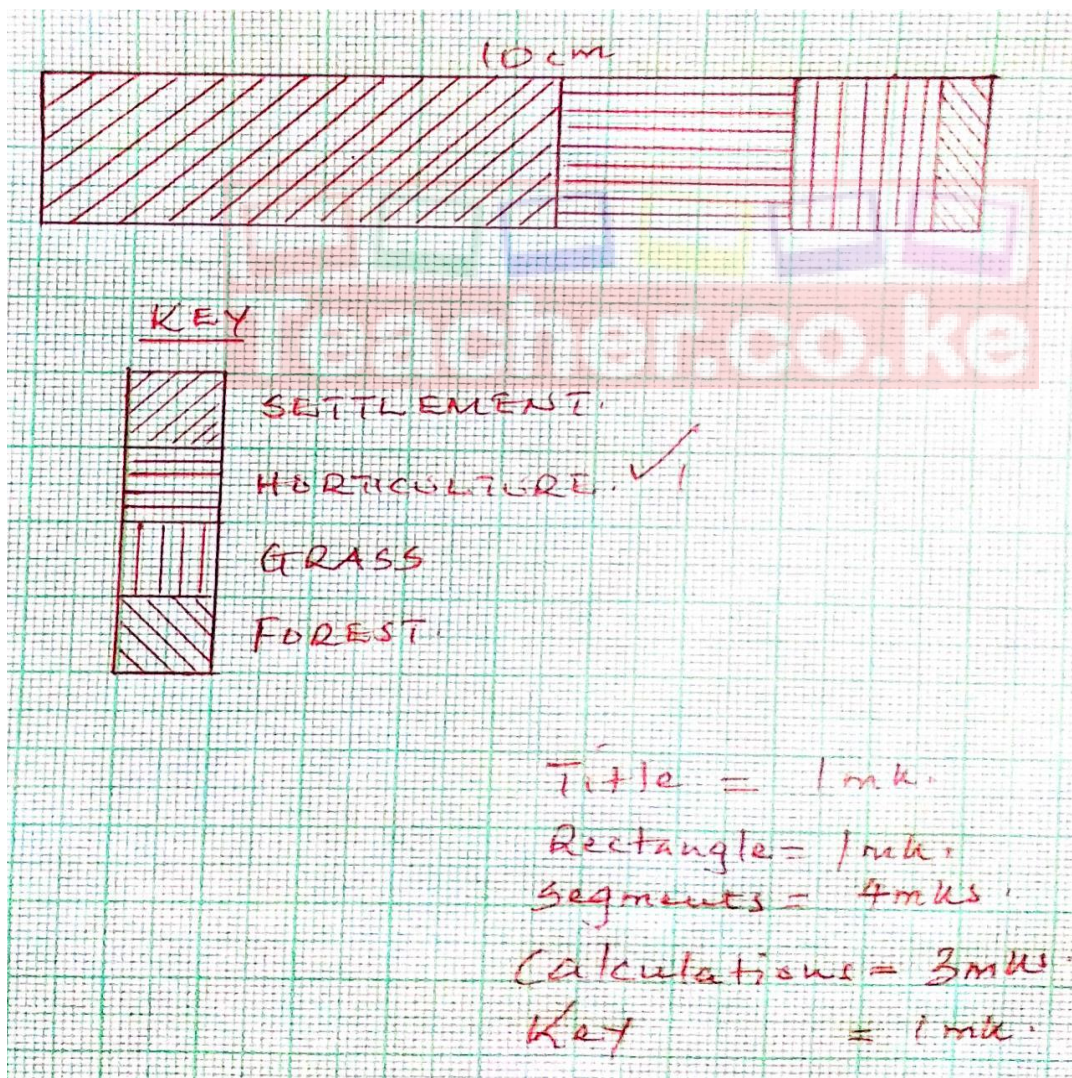 10 cm
Teacher.co.ke
KEY
SETTLEMENT.
HORTICULTURE. ✓1
GRASS
FOREST.
Title = 1mk.
Rectangle = 1mk.
Segments = 4mks.
Calculations = 3mks.
Key = 1mk.